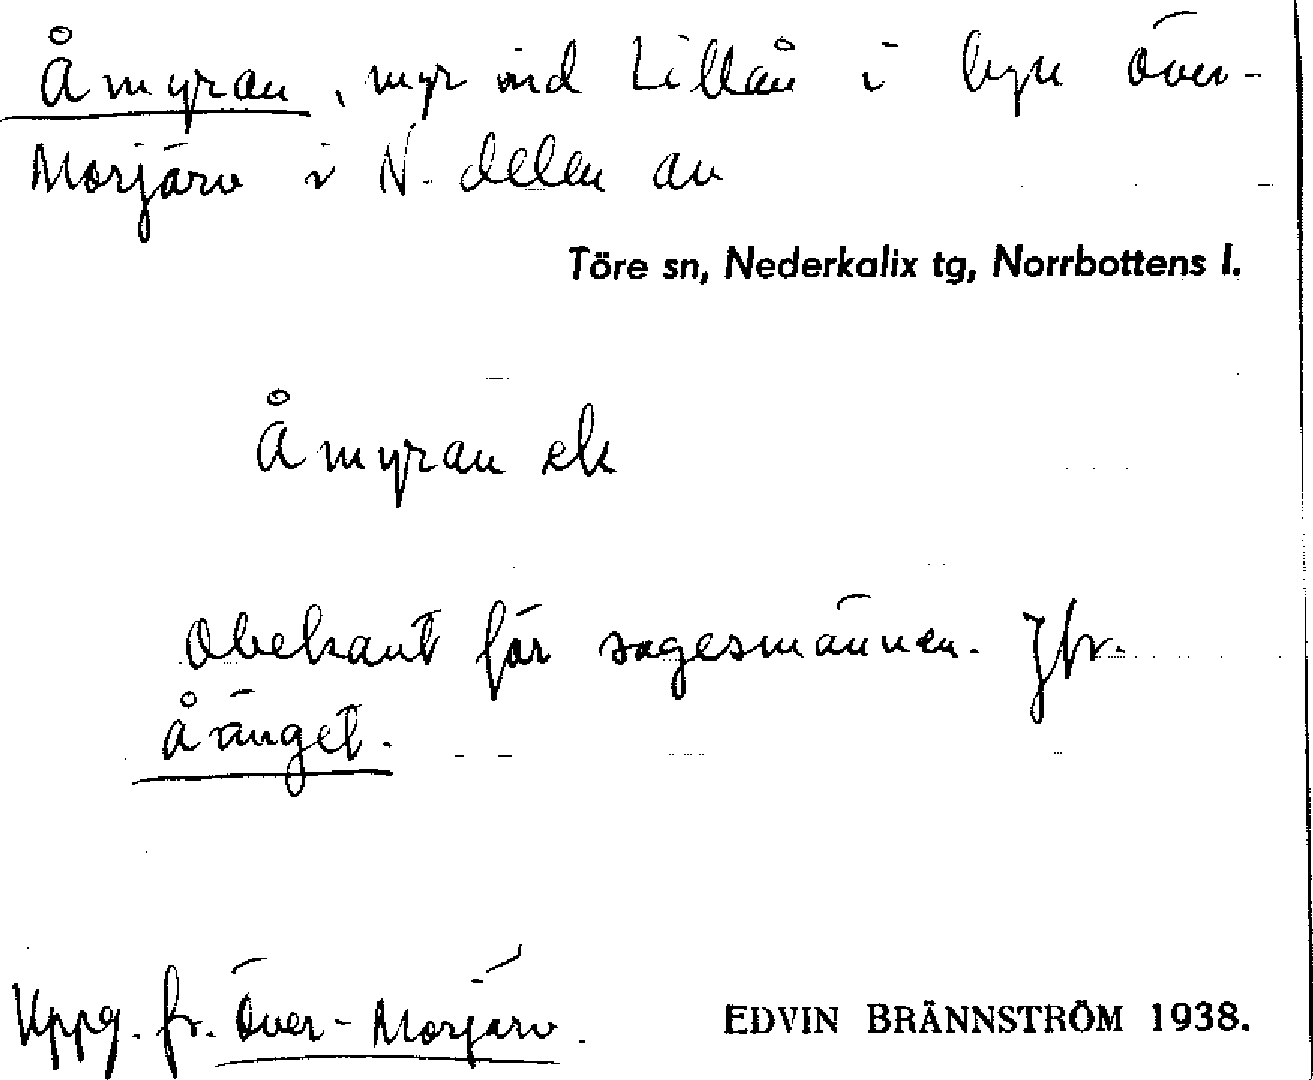 Åmyran, myr vid Lillån i byn Över-
Morjärv i N. delen av
Töre sn, Nederkalix tg, Norrbottens l.
Åmyran ek
Obekant för sagesmännen. Jfr.
Åänget.
Uppg. fr. Över-Morjärv.
EDVIN BRÄNNSTRÖM 1938.